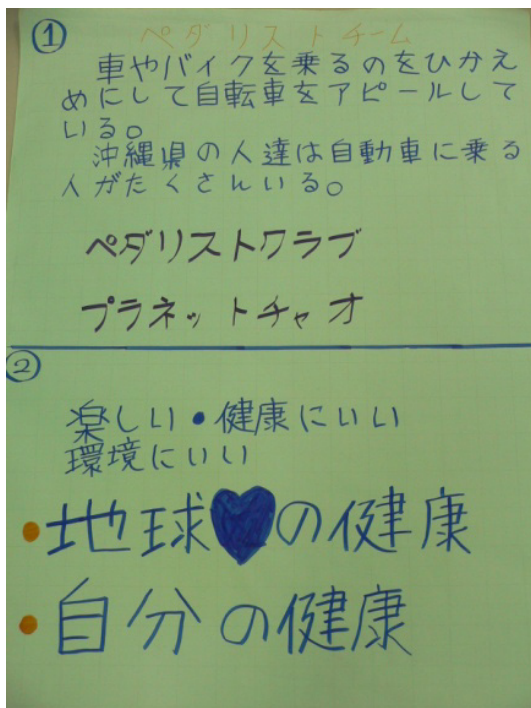 ① ペダリストチーム
車やバイクを乗るのをひかえ
めにして自転車をアピールして
いる。
沖縄県の人達は自動車に乗る
人がたくさんいる。
ペダリストクラブ
プラネットチャオ
②
楽しい・健康にいい
環境にいい
・地球♥の健康
・自分の健康